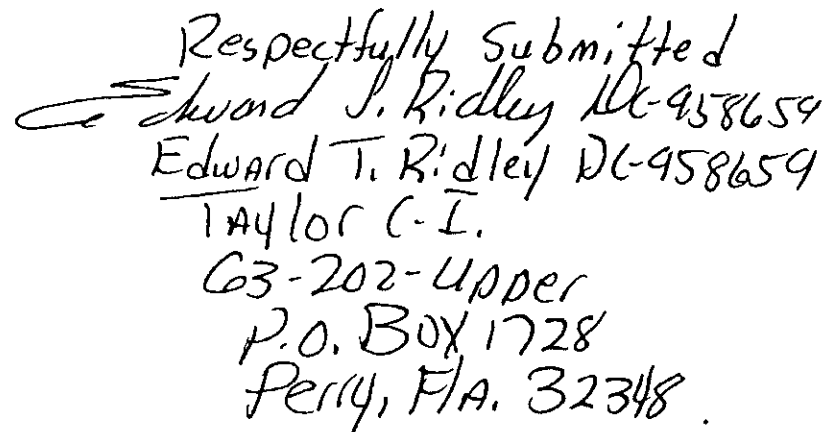 Respectfully Submitted
Edward T. Ridley DC-958659
Edward T. Ridley DC-958659
Taylor C.I.
G3-202-Upper
P.O. Box 1728
Perry, Fla. 32348.